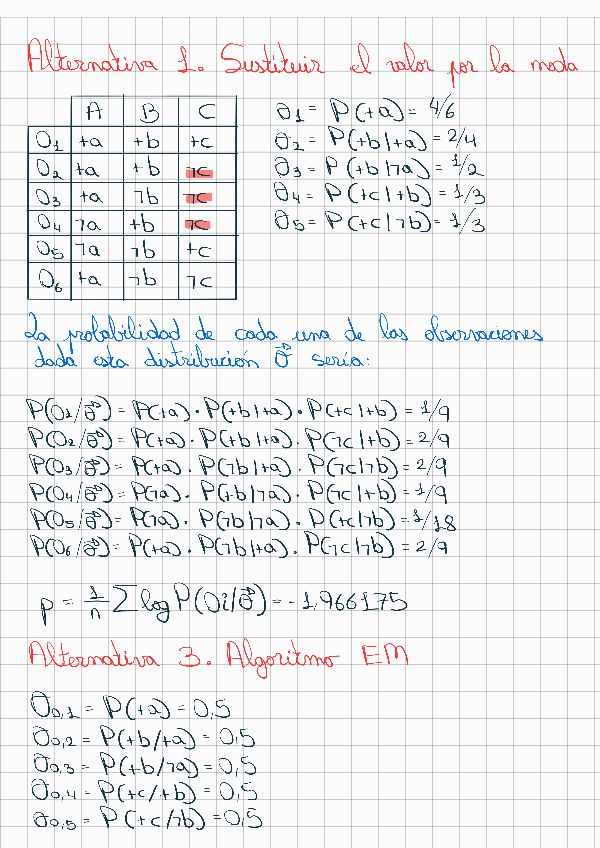 Alternativa 1. Sustituir el valor por la moda
A B C
O1 +a +b +c
O2 +a +b ¬c
O3 +a ¬b ¬c
O4 ¬a +b ¬c
O5 ¬a ¬b +c
O6 +a ¬b ¬c
θ1 = P(+a) = 4/6
θ2 = P(+b|+a) = 2/4
θ3 = P(+b|¬a) = 1/2
θ4 = P(+c|+b) = 1/3
θ5 = P(+c|¬b) = 1/3
La probabilidad de cada una de las observaciones
dada esta distribución θ⃗ sería:
P(O1/θ⃗) = P(+a) · P(+b|+a) · P(+c|+b) = 1/9
P(O2/θ⃗) = P(+a) · P(+b|+a) · P(¬c|+b) = 2/9
P(O3/θ⃗) = P(+a) · P(¬b|+a) · P(¬c|¬b) = 2/9
P(O4/θ⃗) = P(¬a) · P(+b|¬a) · P(¬c|+b) = 1/9
P(O5/θ⃗) = P(¬a) · P(¬b|¬a) · P(+c|¬b) = 1/18
P(O6/θ⃗) = P(+a) · P(¬b|+a) · P(¬c|¬b) = 2/9
p = 1/n Σ log P(Oi/θ⃗) = -1,966175
Alternativa 3. Algoritmo EM
θ0,1 = P(+a) = 0,5
θ0,2 = P(+b/+a) = 0,5
θ0,3 = P(+b/¬a) = 0,5
θ0,4 = P(+c/+b) = 0,5
θ0,5 = P(+c/¬b) = 0,5